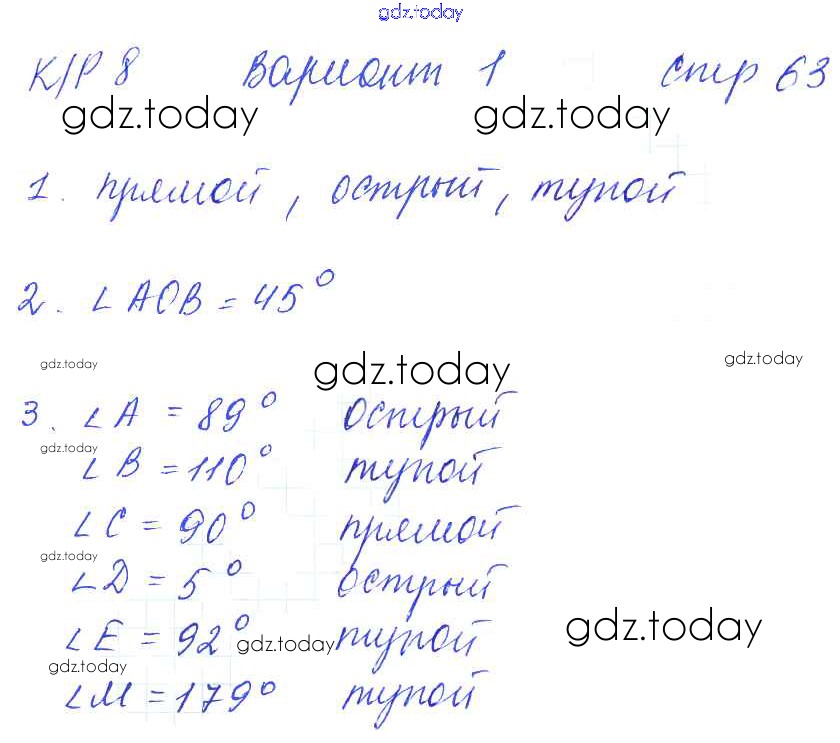 gdz.today
К/Р 8 Вариант 1 стр 63
gdz.today gdz.today
1. прямой, острый, тупой
2. ∠AOB = 45°
gdz.today gdz.today gdz.today
3. ∠A = 89° острый
gdz.today
∠B = 110° тупой
∠C = 90° прямой
gdz.today
∠D = 5° острый
∠E = 92° тупой
gdz.today gdz.today
gdz.today
∠M = 179° тупой